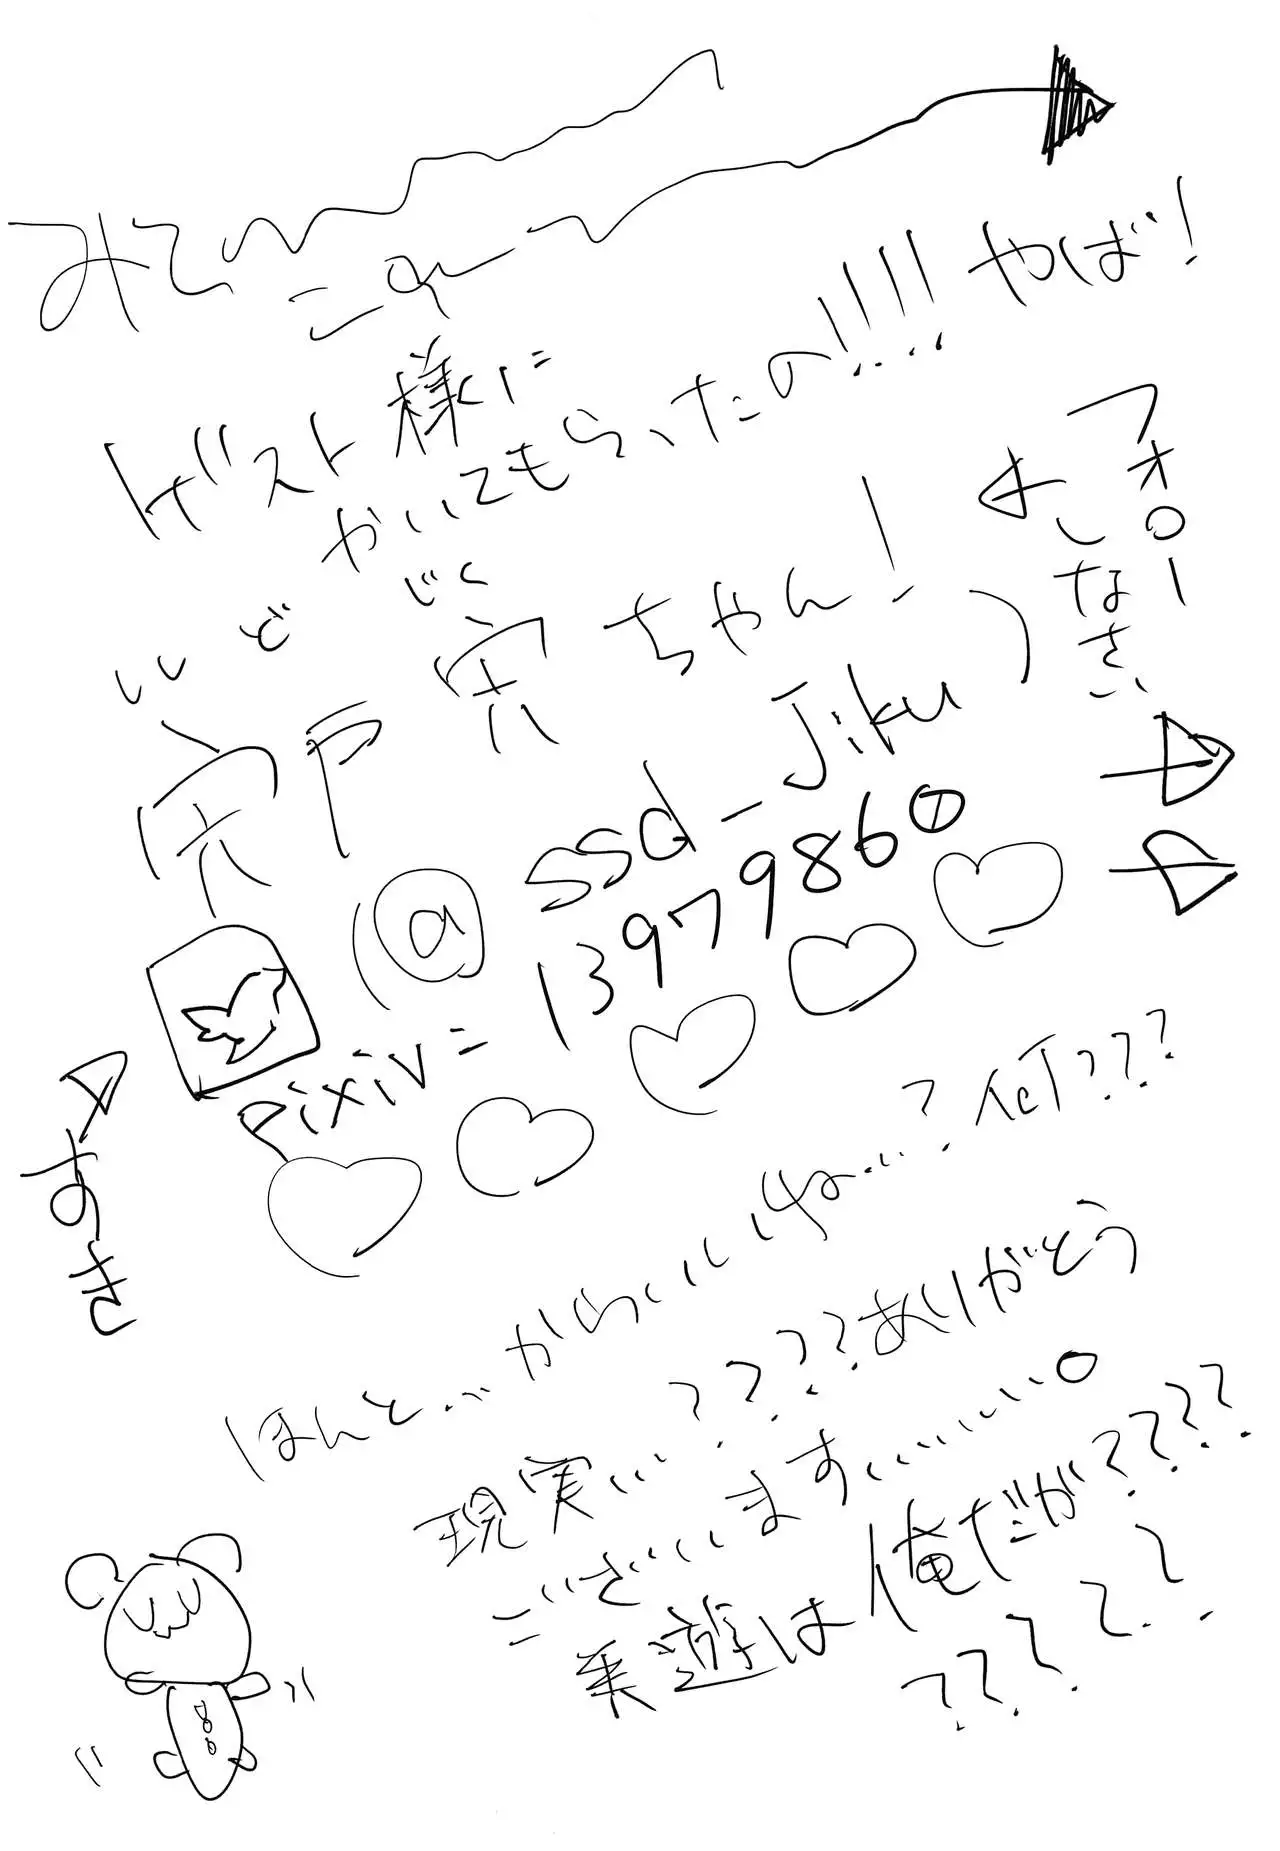 みて
これ
ゲスト様に
かいてもらったの!!!! やば!
ししど じく
宍戸 宍ちゃん!
フォロー
しなさい
(@ssd_Jiku)
pixiv=139798607
すき
ほんと…かわいいね…?何???
現実…????ありがとう
ございます…………。
乗遊は俺だが????
?????